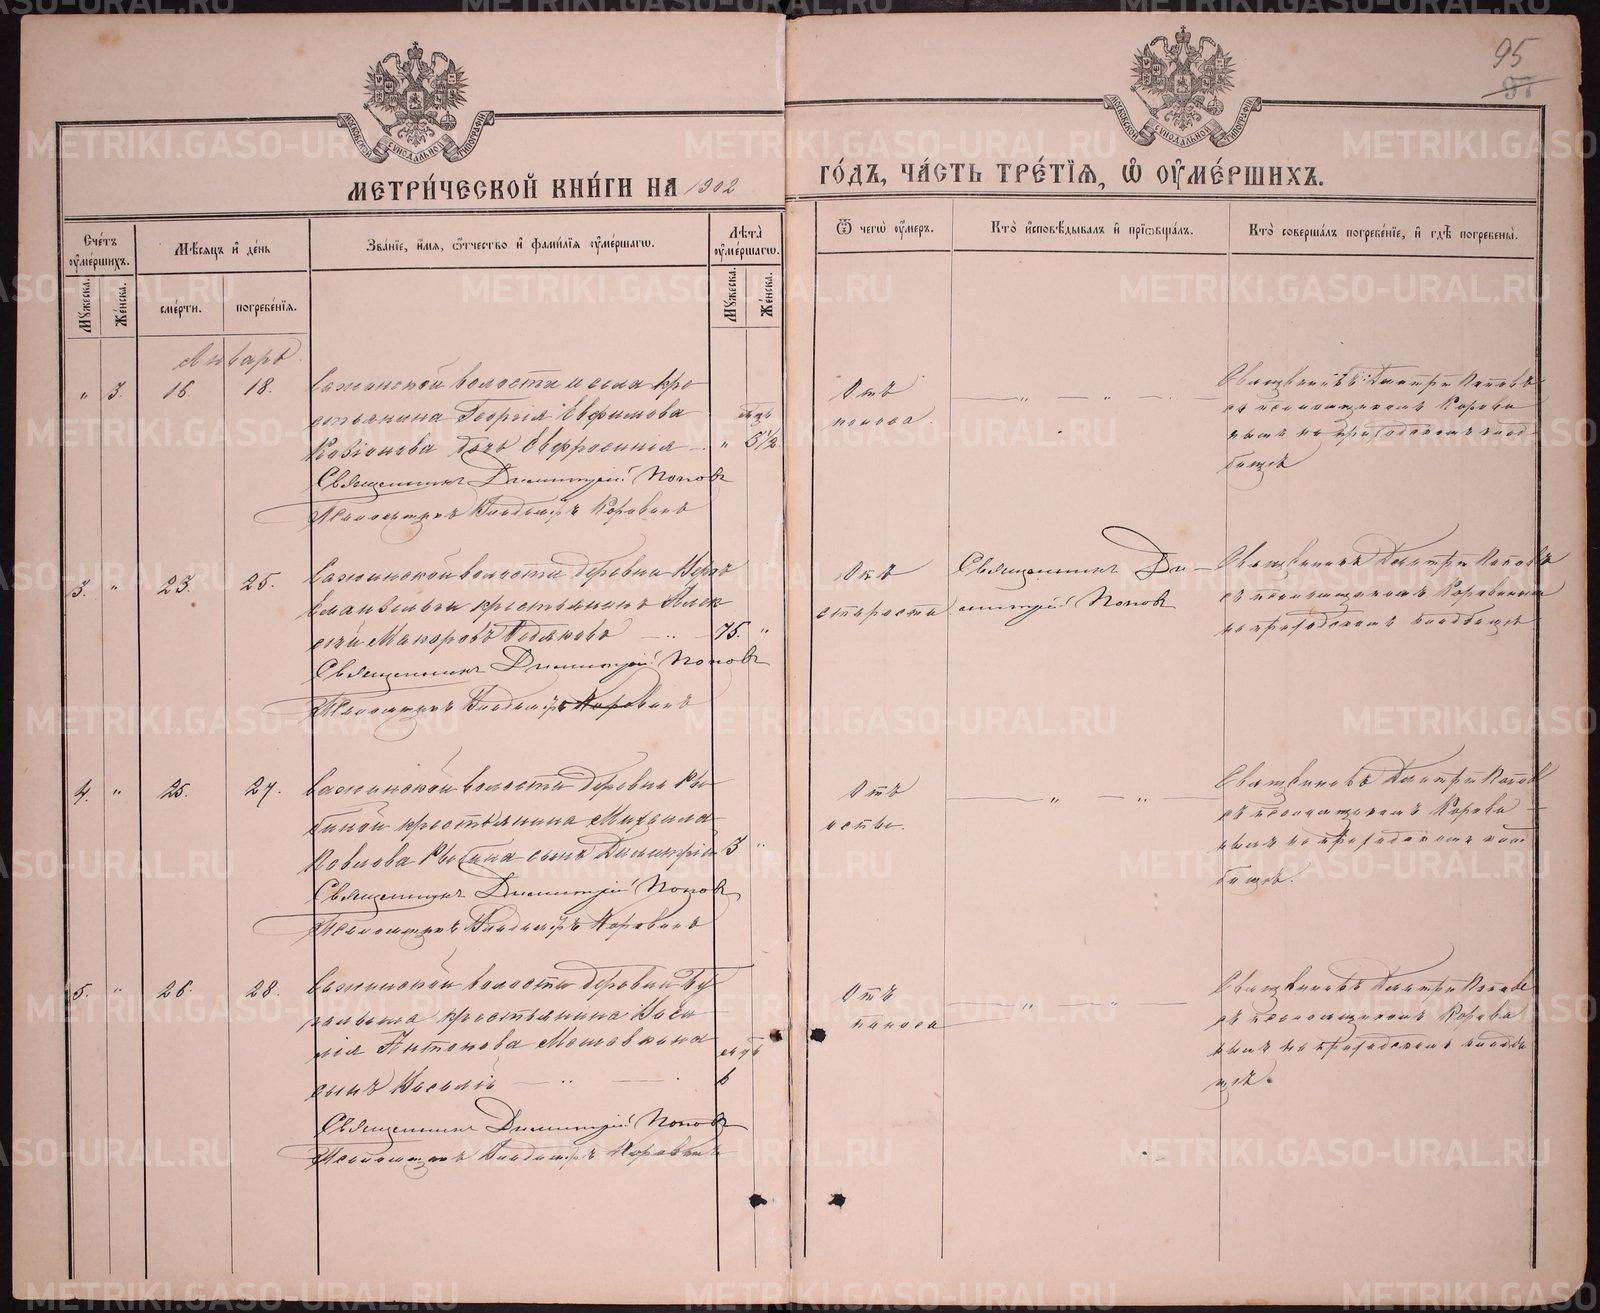 95
МЕТРИ́ЧЕСКОЙ КНИ́ГИ НА 1902
ГО́ДЪ, ЧА́СТЬ ТРЕ́ТЇѦ, Ѡ҆ ОУ҆МЕ́РШИХЪ.
Сче́тъ оу҆ме́ршихъ.
Мꙋ́жеска.
Же́нска.
Мѣ́сѧцъ и҆ де́нь
сме́рти.
погребе́нїѧ.
Зва́нїе, и҆́мѧ, ѻ҆́тчество и҆ фами́лїѧ оу҆ме́ршагѡ.
Лѣта̀ оу҆ме́ршагѡ.
Мꙋ́жеска.
Же́нска.
Ѿ чегѡ̀ оу҆́меръ.
Кто̀ и҆сповѣ́дывалъ и҆ прїѡбща́лъ.
Кто̀ соверша́лъ погребе́нїе, и҆ гдѣ̀ погребены̀.
Январь
" 3. 16. 18.
волости и села кре-
стьянина Георгія Евфимова
дочь Евфросинія
" 5 1/2
Священникъ Димитрій Поповъ
Псаломщикъ Владиміръ Коровинъ
Отъ
поноса.
Священникъ Димитри Поповъ
съ псаломщикомъ Корови
нымъ на приходскомъ клад
бищѣ
3. " 23. 25.
волости деревни
крестьянинъ Алек
сѣй Макаровъ
75. "
Священникъ Димитрій Поповъ
Псаломщикъ Владиміръ Коровинъ
Отъ
старости
Священникъ Ди-
митрій Поповъ
Священникъ Димитри Поповъ
съ псаломщикомъ Коровинымъ
на приходскомъ кладбищѣ
4. " 25. 27.
волости деревни Ря-
биной крестьянина Михаила
Павлова сынъ Димитрій
3 "
Священникъ Димитрій Поповъ
Псаломщикъ Владиміръ Коровинъ
Отъ
оспы.
Священникъ Димитри Попов
съ псаломщикомъ Корови
нымъ на приходскомъ клад
бищѣ.
5. " 26. 28.
волости деревни
крестьянина Васи
лія Антонова
сынъ Василій
6
Священникъ Димитрій Поповъ
Псаломщикъ Владиміръ Коровинъ
Отъ
поноса
Священникъ Димитри Поповъ
съ псаломщикомъ Корови
нымъ на приходскомъ кладби
щѣ.
METRIKI.GASO-URAL.RU